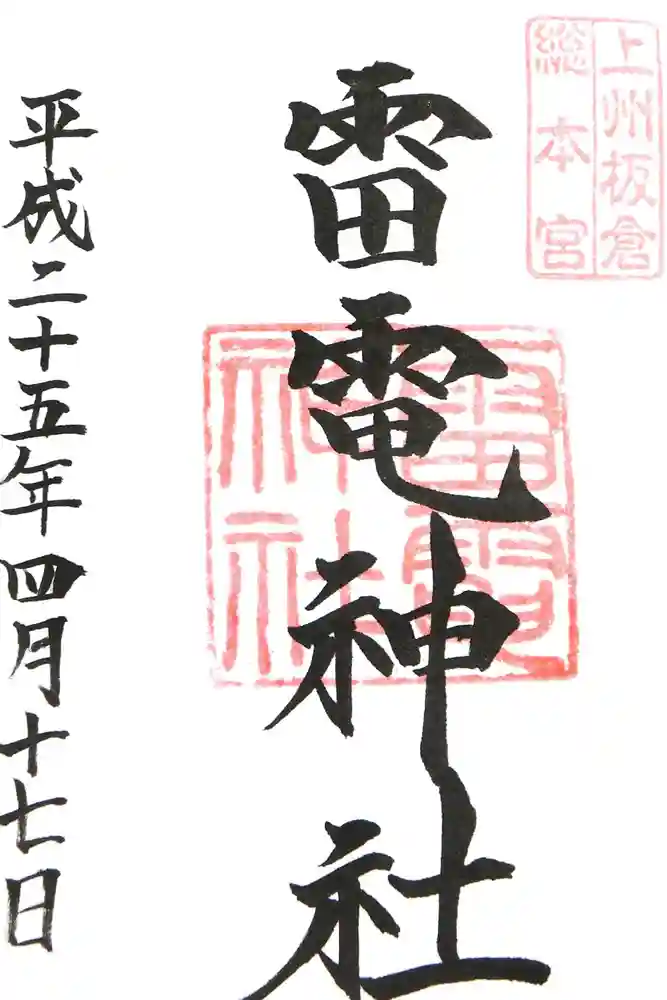 上州板倉
総本宮
雷電神社
雷電
神社
平成二十五年四月十七日